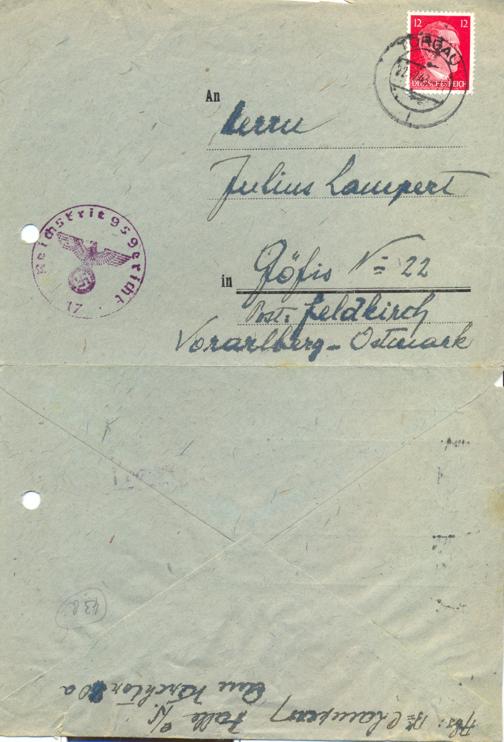 12 12
TORGAU
22.
DEUTSCHES REICH
An
Herrn
Julius Lampert
in Göfis № 22
Post: Feldkirch
Vorarlberg - Ostmark
Reichskriegsgericht
17
Abs: Halle a/S
Am Kirchtor 20a